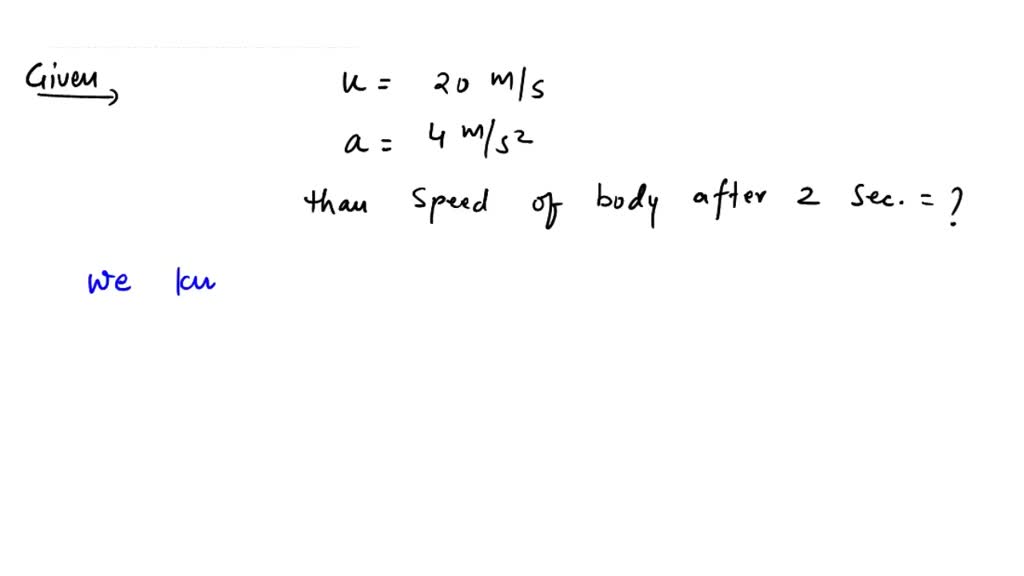 Given
u = 20 m/s
a = 4 m/s²
than speed of body after 2 sec. = ?
we kn